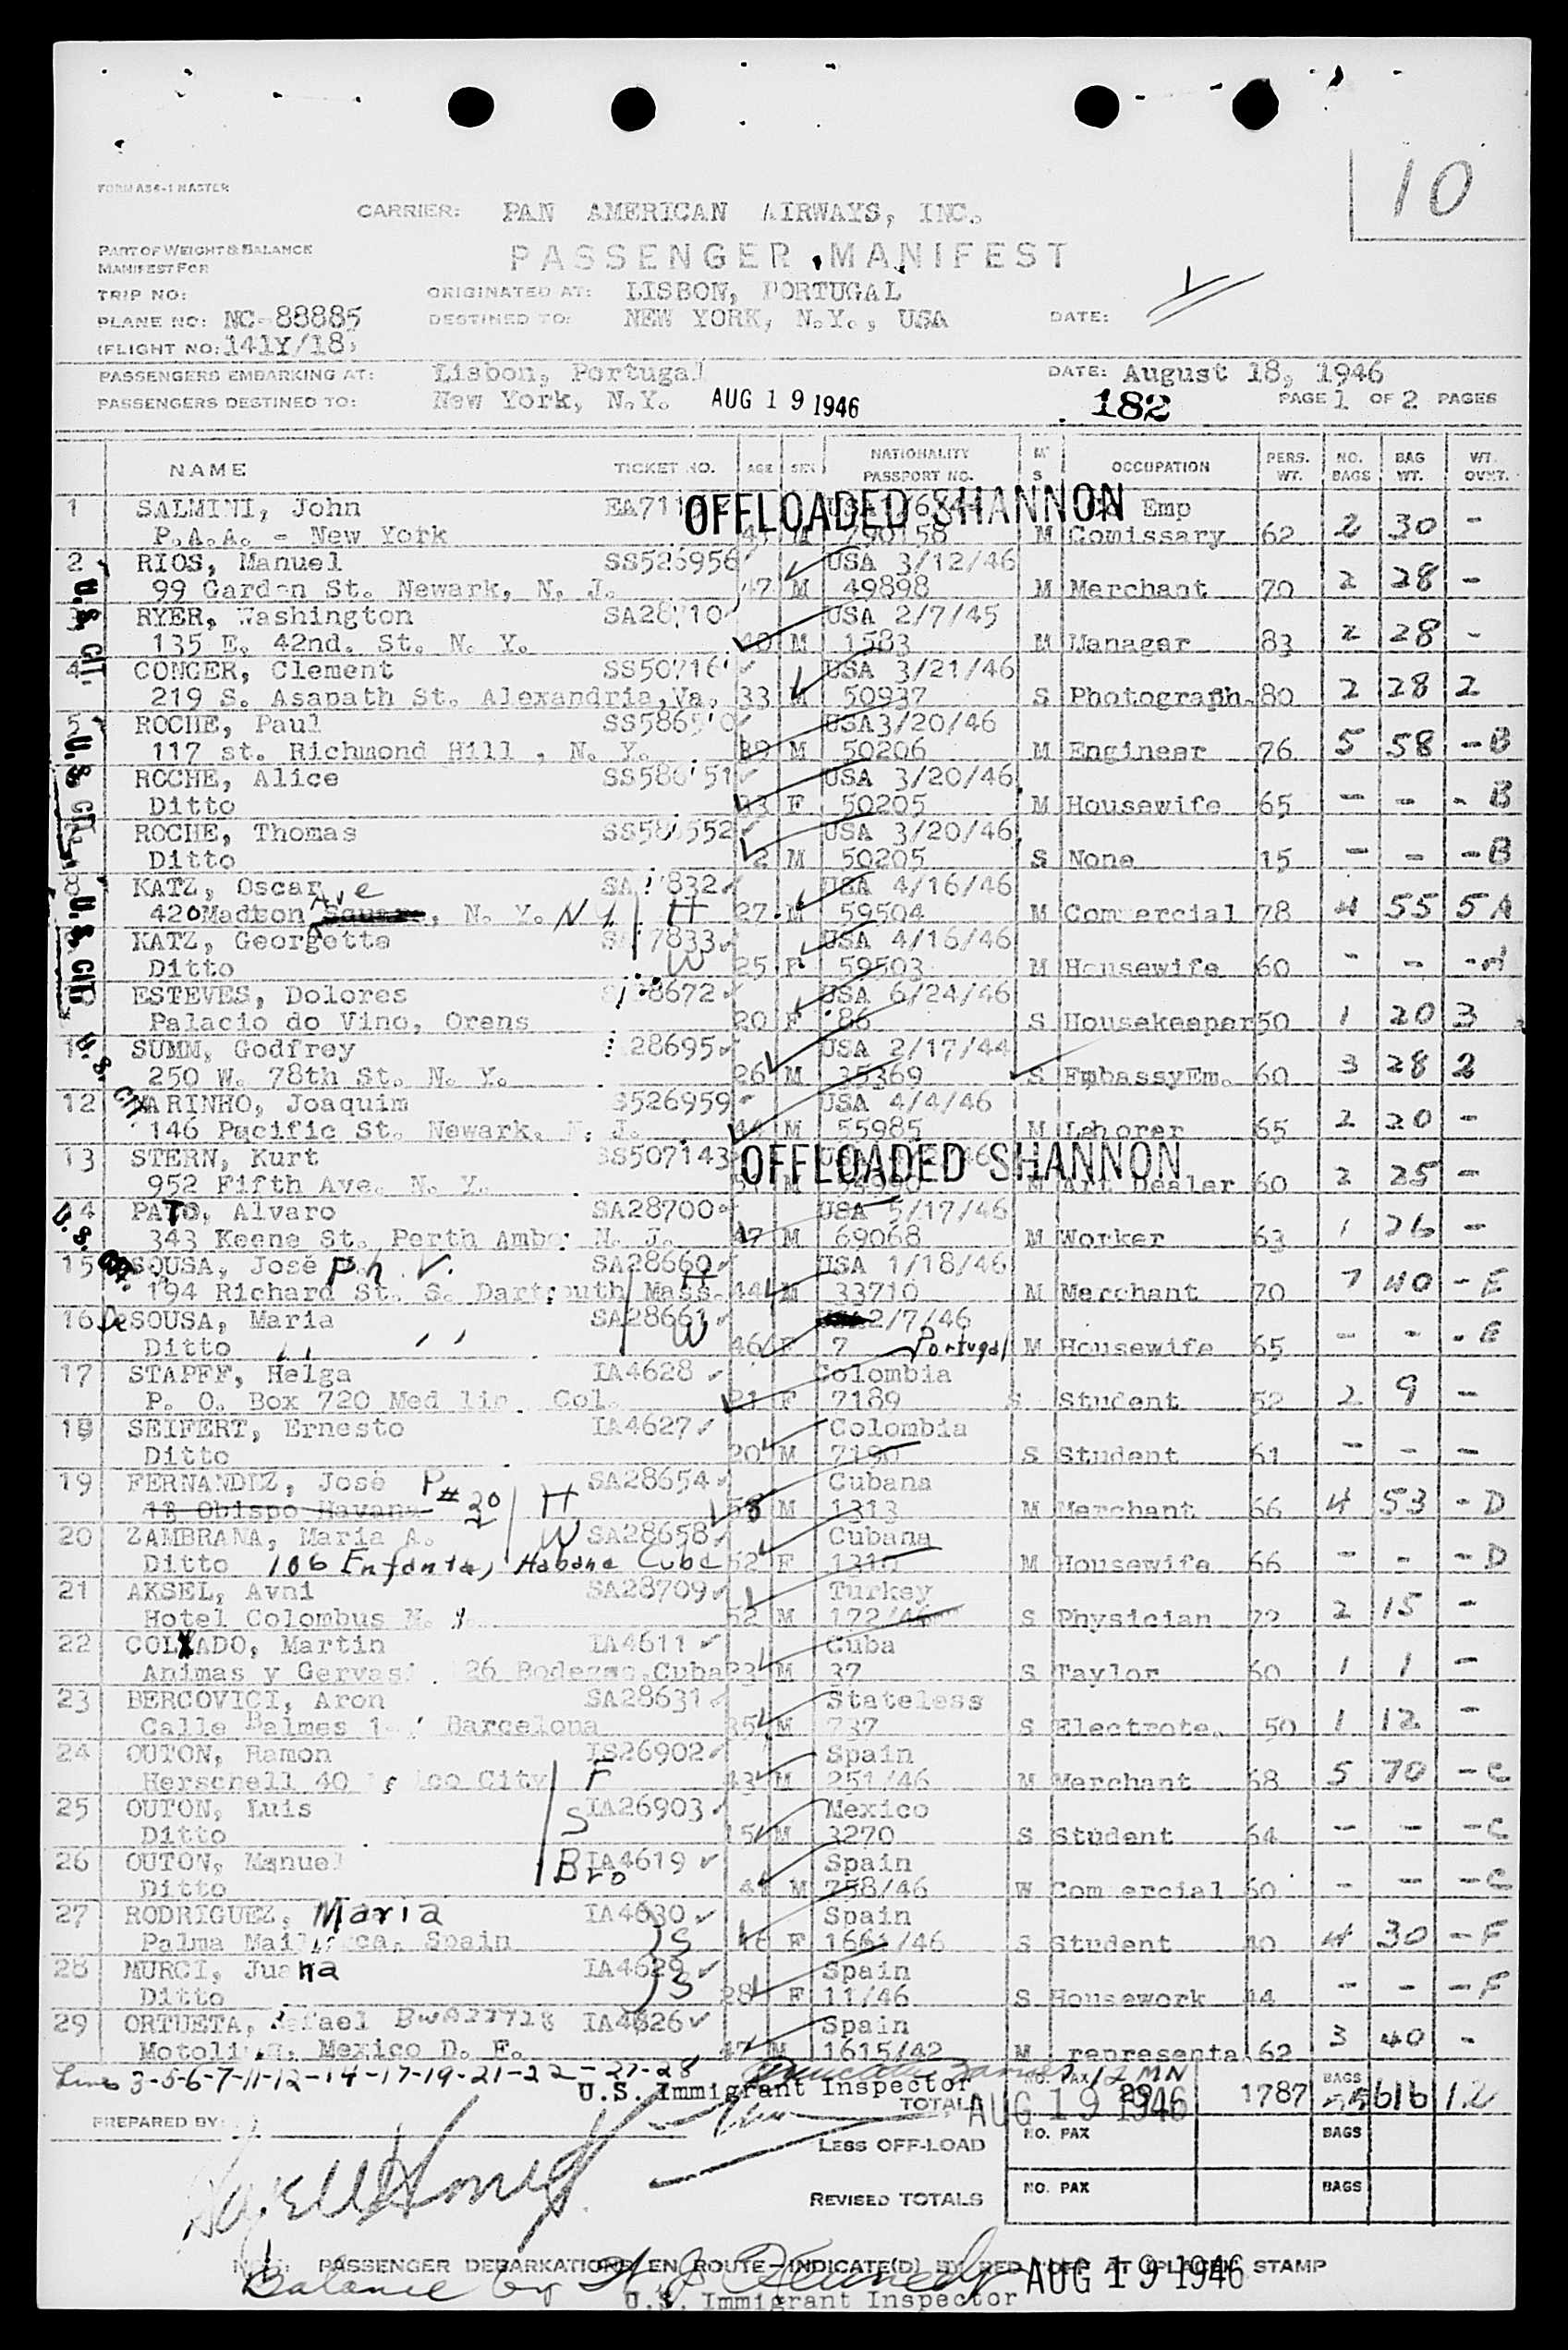 10
FORM AS6-1 MASTER
CARRIER: PAN AMERICAN AIRWAYS, INC.
PART OF WEIGHT & BALANCE
MANIFEST FOR
PASSENGER MANIFEST
TRIP NO: ORIGINATED AT: LISBON, PORTUGAL
PLANE NO: NC-88885 DESTINED TO: NEW YORK, N.Y., USA DATE:
(FLIGHT NO: 141Y/18)
PASSENGERS EMBARKING AT: Lisbon, Portugal DATE: August 18, 1946
PASSENGERS DESTINED TO: New York, N.Y. AUG 19 1946 182 PAGE 1 OF 2 PAGES
NAME TICKET NO. AGE SEX NATIONALITY PASSPORT NO. M S OCCUPATION PERS. WT. NO. BAGS BAG WT. WT. OVWT.
1 SALMINI, John OFFLOADED SHANNON Emp
P.A.A. - New York M 290158 M Comissary 62 2 30 -
2 RIOS, Manuel SS526956 USA 3/12/46
99 Garden St. Newark, N. J. 47 M 49898 M Merchant 70 2 28 -
U.S. CIT.
RYER, Washington USA 2/7/45
135 E. 42nd. St. N. Y. 40 M 1583 M Manager 83 2 28 -
4 CONGER, Clement USA 3/21/46
219 S. Asapath St. Alexandria, Va. 33 M 50937 S Photograph. 80 2 28 2
5 ROCHE, Paul USA 3/20/46
117 st. Richmond Hill , N. Y. 39 M 50206 M Engineer 76 5 58 - B
U.S. CIT.
ROCHE, Alice USA 3/20/46
Ditto 33 F 50205 M Housewife 65 - - - B
ROCHE, Thomas USA 3/20/46
Ditto 2 M 50205 S None 15 - - - B
8 KATZ, Oscar Ave USA 4/16/46
420 Madison Square, N. Y. N Y H 27 M 59504 M Commercial 78 4 55 5 A
U.S. CIT.
KATZ, Georgette USA 4/16/46
Ditto W 25 F 59503 M Housewife 60 - - - A
ESTEVES, Dolores USA 6/24/46
Palacio do Vino, Orens 20 F 86 S Housekeeper 50 1 20 3
SUMM, Godfrey 28695 USA 2/17/44
250 W. 78th St. N. Y. 26 M 35369 S EmbassyEm. 60 3 28 2
U.S. CIT.
12 MARINHO, Joaquim S526959 USA 4/4/46
146 Pacific St. Newark, N. J. 44 M 55985 M Laborer 65 2 20 -
13 STERN, Kurt SS507143 OFFLOADED SHANNON
952 Fifth Ave. N. Y. M M Art Dealer 60 2 25 -
14 PATO, Alvaro SA28700 USA 5/17/46
343 Keene St. Perth Amboy N. J. 47 M 69068 M Worker 63 1 26 -
U.S. CIT.
15 SOUSA, José Ph. V. SA28660 USA 1/18/46
194 Richard St. S. Dartmouth Mass. H 44 M 33710 M Merchant 70 7 40 - E
16 De SOUSA, Maria SA28661 2/7/46
Ditto W 46 F 7 Portugal M Housewife 65 - - - E
17 STAPFF, Helga IA4628 Colombia
P. O. Box 720 Medllin Col. 21 F 7189 S Student 52 2 9 -
18 SEIFERT, Ernesto IA4627 Colombia
Ditto 20 M 7190 S Student 61 - - -
19 FERNANDEZ, José P# 20 H SA28654 Cubana
12 Obispo Havana 58 M 1313 M Merchant 66 4 53 - D
20 ZAMBRANA, Maria A. W SA28658 Cubana
Ditto 106 Enfanta, Habana Cuba 52 F 1316 M Housewife 66 - - - D
21 AKSEL, Avni SA28709 Turkey
Hotel Colombus N. Y. 52 M S Physician 72 2 15 -
22 COLLADO, Martin IA4611 Cuba
Animas y Gervasi 126 Bodegas, Cuba 23 M 37 S Taylor 60 1 1 -
23 BERCOVICI, Aron SA28631 Stateless
Calle Balmes Barcelona 35 M 737 S Electrote. 50 1 12 -
24 OUTON, Ramon IS26902 Spain
Herschell 40 Mexico City F 43 M 251/46 M Merchant 68 5 70 - C
25 OUTON, Luis IA26903 Mexico
Ditto S 15 M 3270 S Student 64 - - - C
26 OUTON, Manuel IA4619 Spain
Ditto Bro M 758/46 W Commercial 60 - - - C
27 RODRIGUEZ, Maria IA4630 Spain
Palma Mallorca, Spain S 16 F 1661/46 S Student 40 4 30 - F
28 MURCI, Juana IA4629 Spain
Ditto S 28 F 11/46 S Housework 44 - - - F
29 ORTUETA, Rafael IA4626 Spain
Motolinia, Mexico D. F. 47 M 1615/42 M representa. 62 3 40 -
Lines 3-5-6-7-11-12-14-17-19-21-22-27-28
U.S. Immigrant Inspector
TOTAL AUG 19 1946 NO. PAX 29 1787 BAGS 55 616 12
PREPARED BY:
LESS OFF-LOAD NO. PAX BAGS
REVISED TOTALS NO. PAX BAGS
NOTE: PASSENGER DEBARKATIONS EN ROUTE - INDICATE(D) BY RED STAMP
Balance by H J Kennedy AUG 19 1946
U.S. Immigrant Inspector